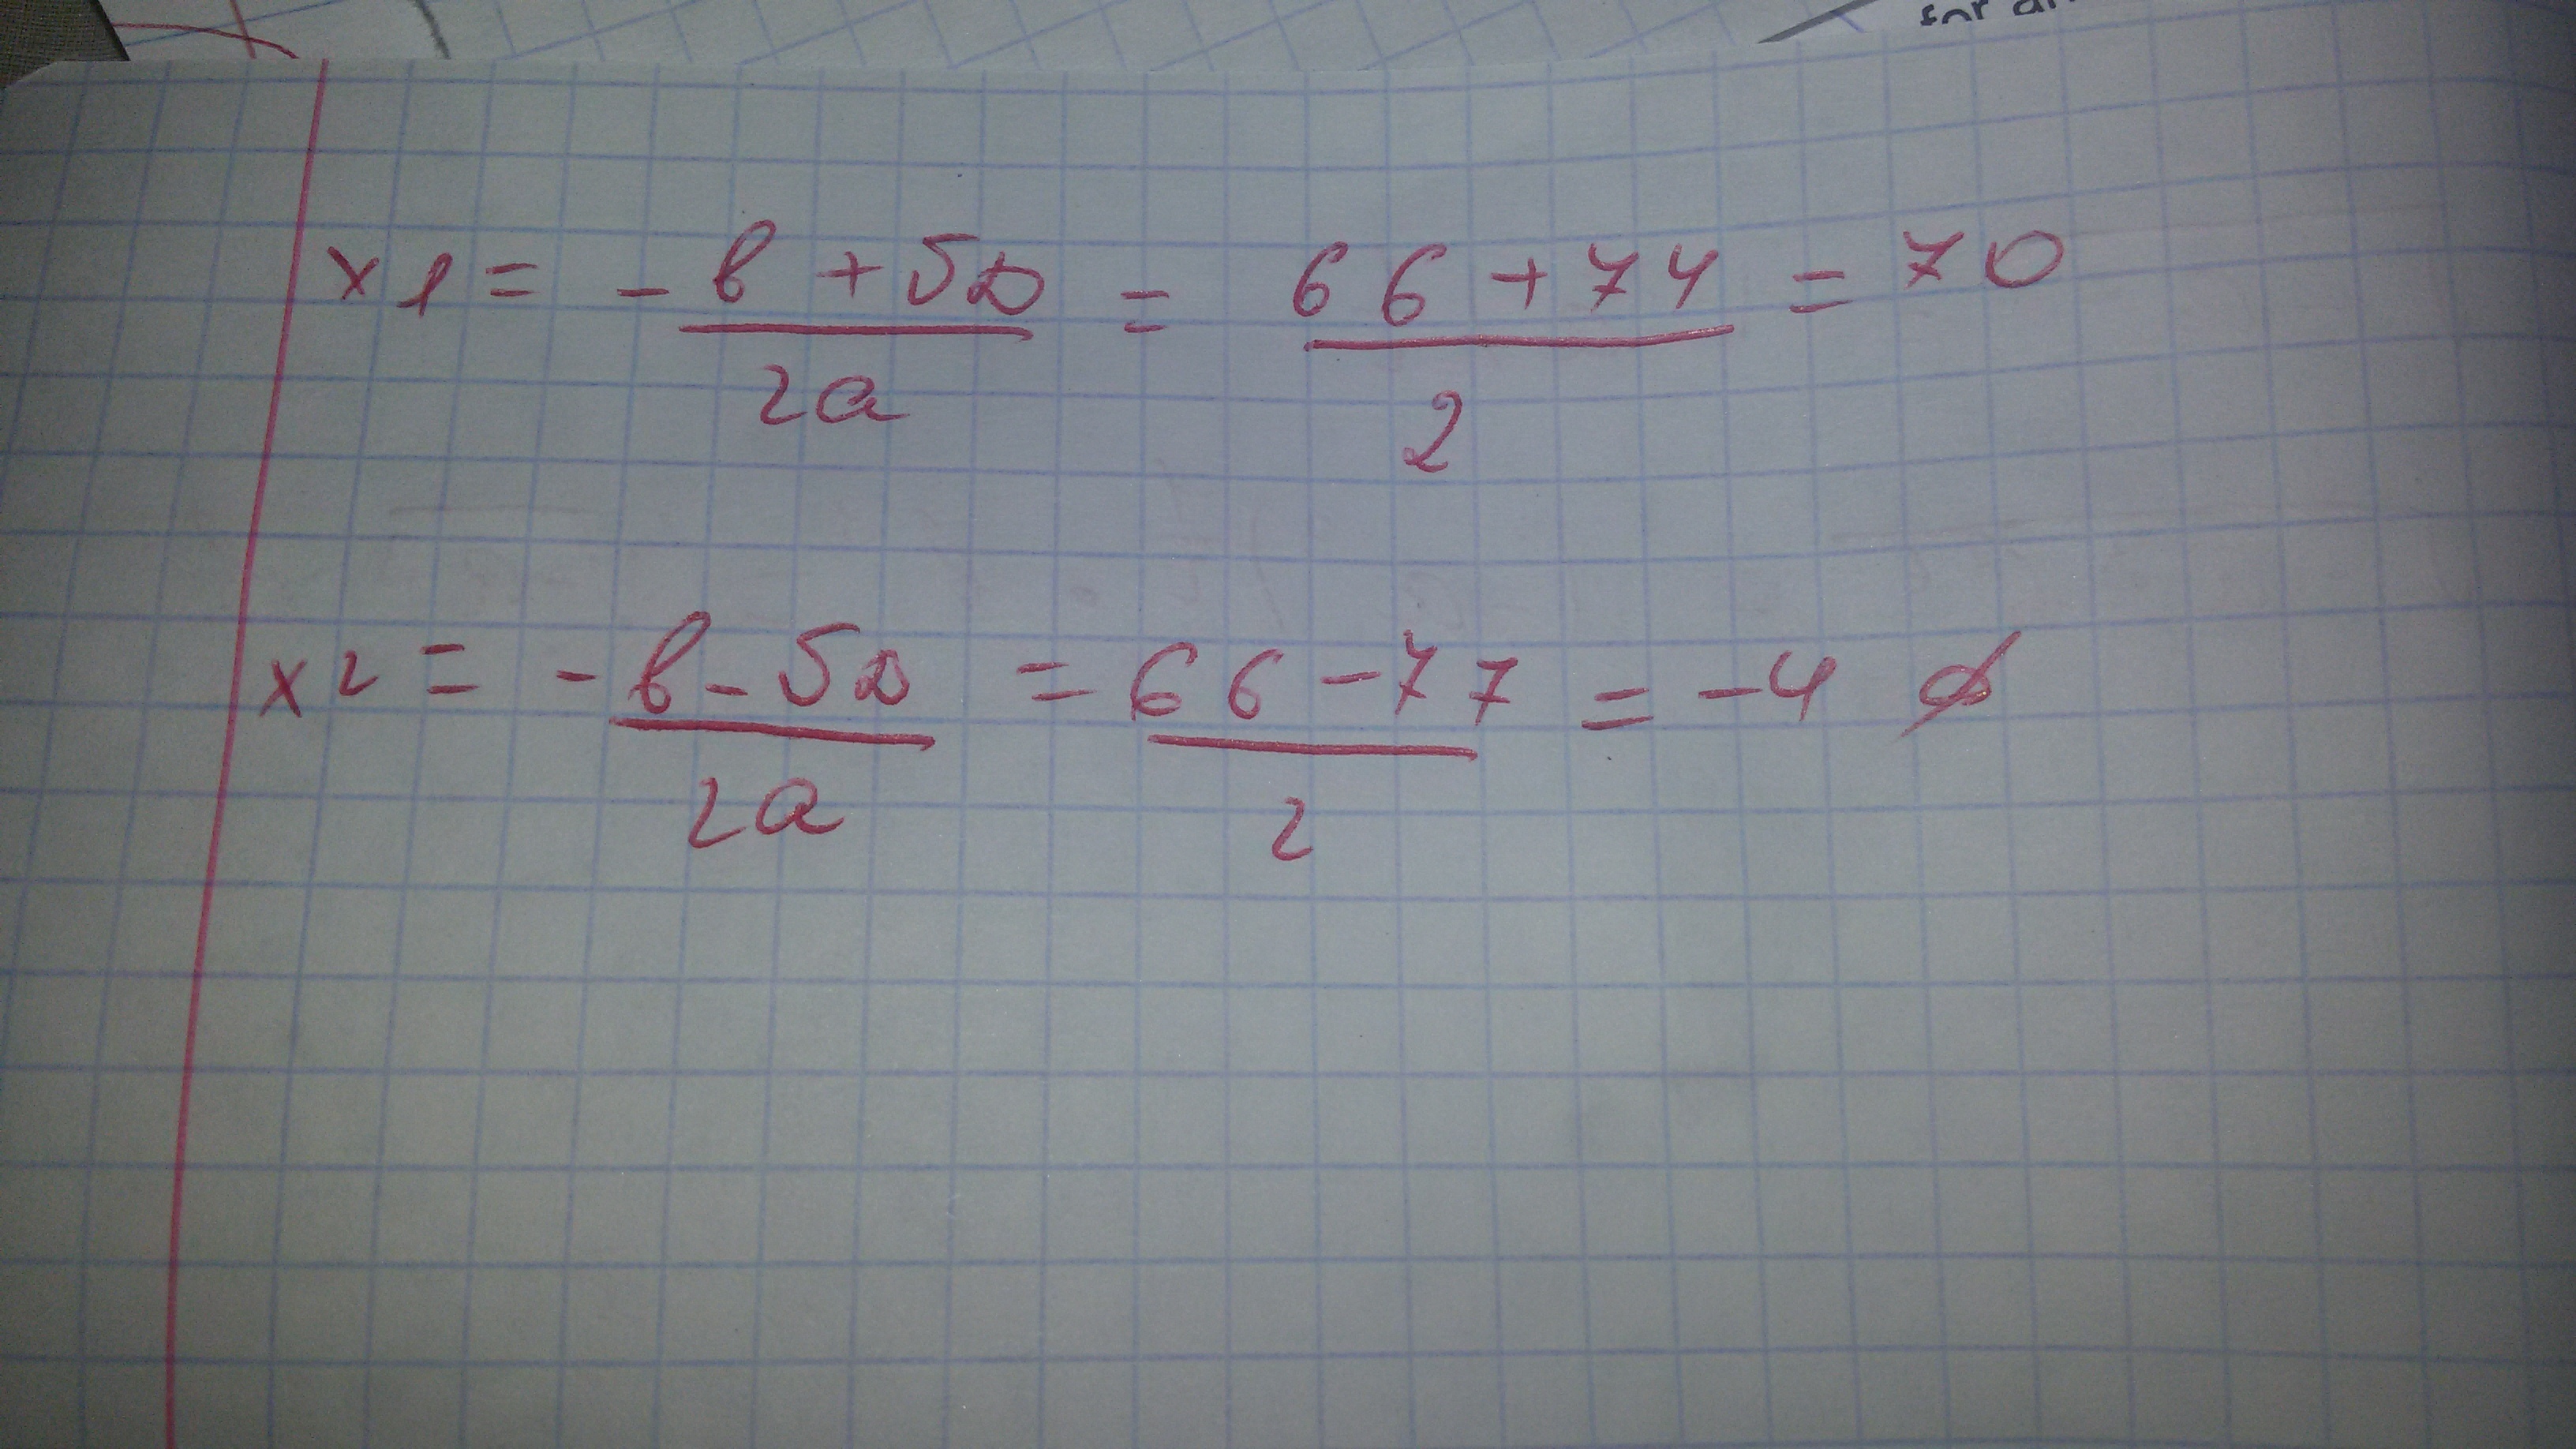 for
x1 = -в + √D / 2a = 66 + 74 / 2 = 70
x2 = -в - √D / 2a = 66 - 77 / 2 = -4 ø